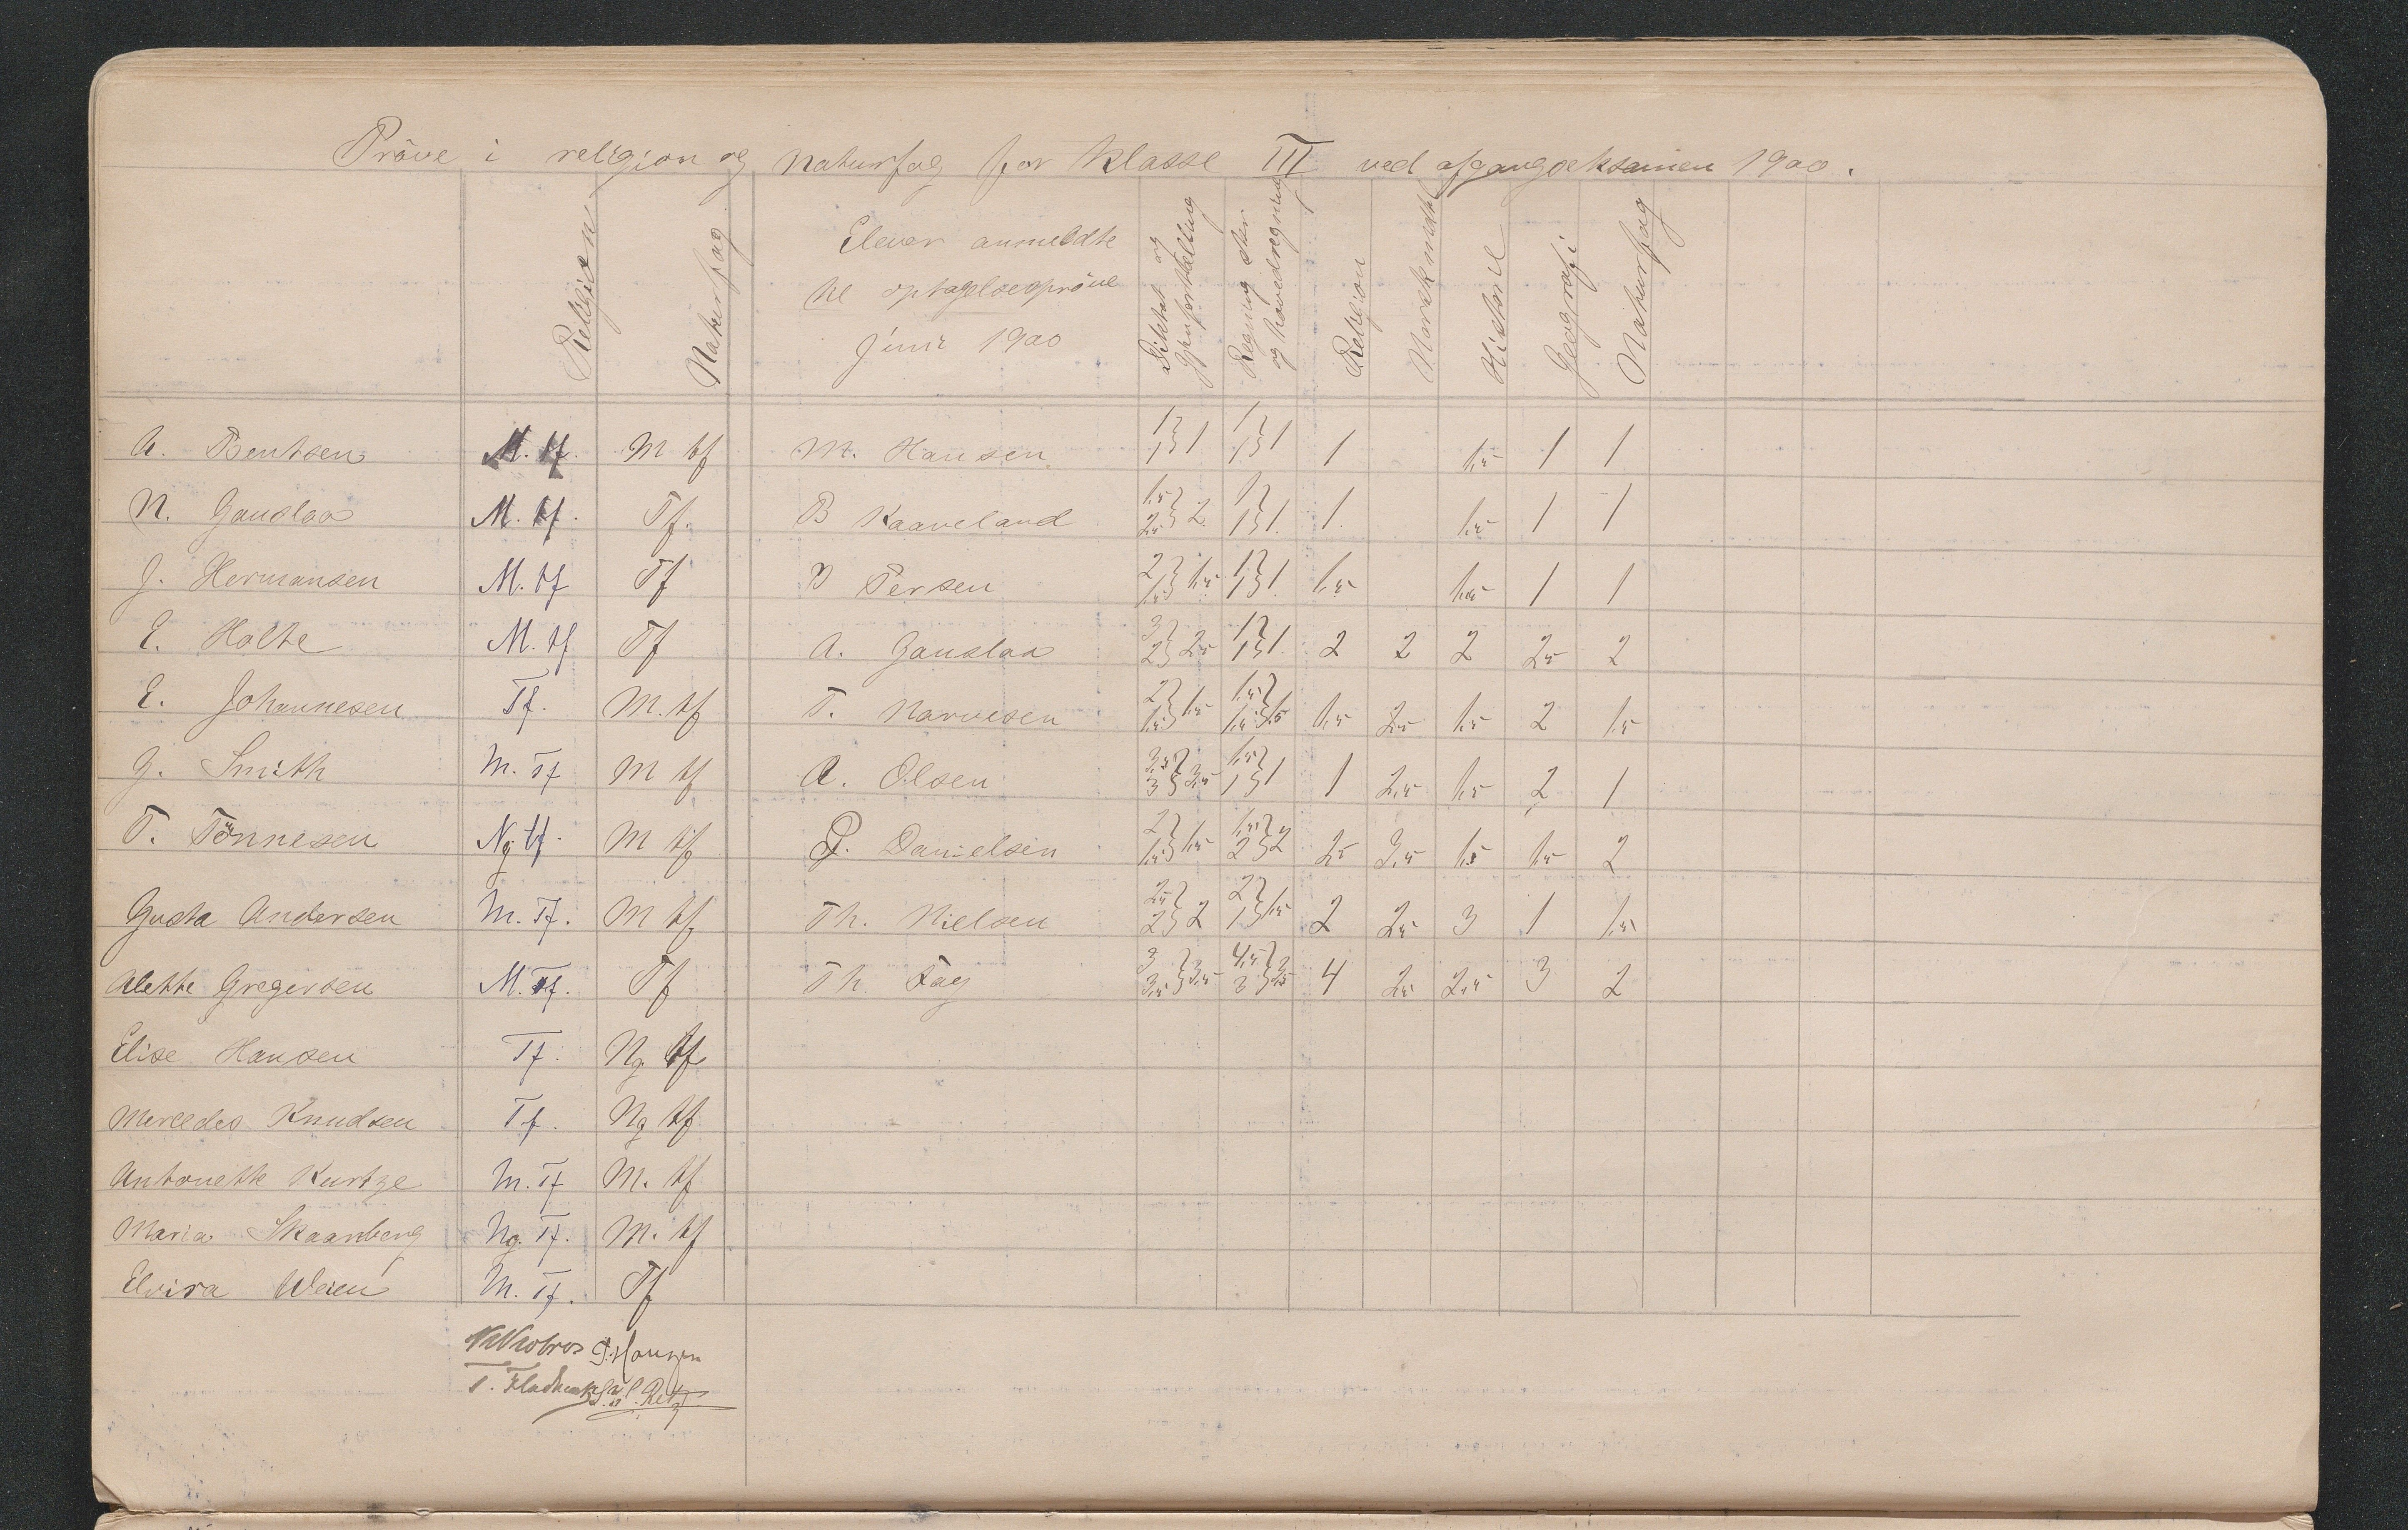 Pröve i religion og naturfag for klasse III ved afgangseksamen 1900.
Religion Naturfag Elever anmeldte til optagelsespröve Juni 1900 Diktat og gjenfortælling Regning skr. og hovedregning Religion Norsk mundtl Historie Geografi Naturfag
A. Bentsen M. tf. M tf M. Hansen 1 1 } 1 1 1 } 1 1 1,5 1 1
N. Gauslaa M. tf. Tf. B Kaaveland 1,5 2,5 } 2 1 1 } 1. 1. 1,5 1 1
J. Hermansen M. tf Tf Persen 2 1,5 } 1,5 1 1 } 1. 1,5 1,5 1 1
E. Holte M. tf Tf A. Gauslaa 3 2 } 2,5 1 1 } 1. 2 2 2 2,5 2
E. Johannesen Tf. M. tf T. Narvesen 2 1,5 } 1,5 1,5 1,5 } 1,5 1,5 2,5 1,5 2 1,5
G. Smith M. Tf M tf A. Olsen 3,5 3 } 3,5 1,5 1 } 1 1 2,5 1,5 2 1
T. Tönnesen Ng tf. M tf P. Danielsen 2 1,5 } 1,5 1,5 2 } 2 2,5 3,5 1,5 1,5 2
Gusta Andersen M. Tf. M tf Th. Nielsen 2,5 2 } 2 2 1 } 1,5 2 2,5 3 1 1,5
Alette Gregersen M. Tf. Tf Th. Fay 3 3,5 } 3,5 4,5 3 } 4 2,5 2,5 3 2
Elise Hansen Tf. Ng. tf
Mercedes Knudsen Tf. Ng tf
Antonette Kurtze M. Tf M. tf
Maria Skaanberg Ng. Tf. M. tf
Elvira Weien M. Tf. Tf
Hansen
T.